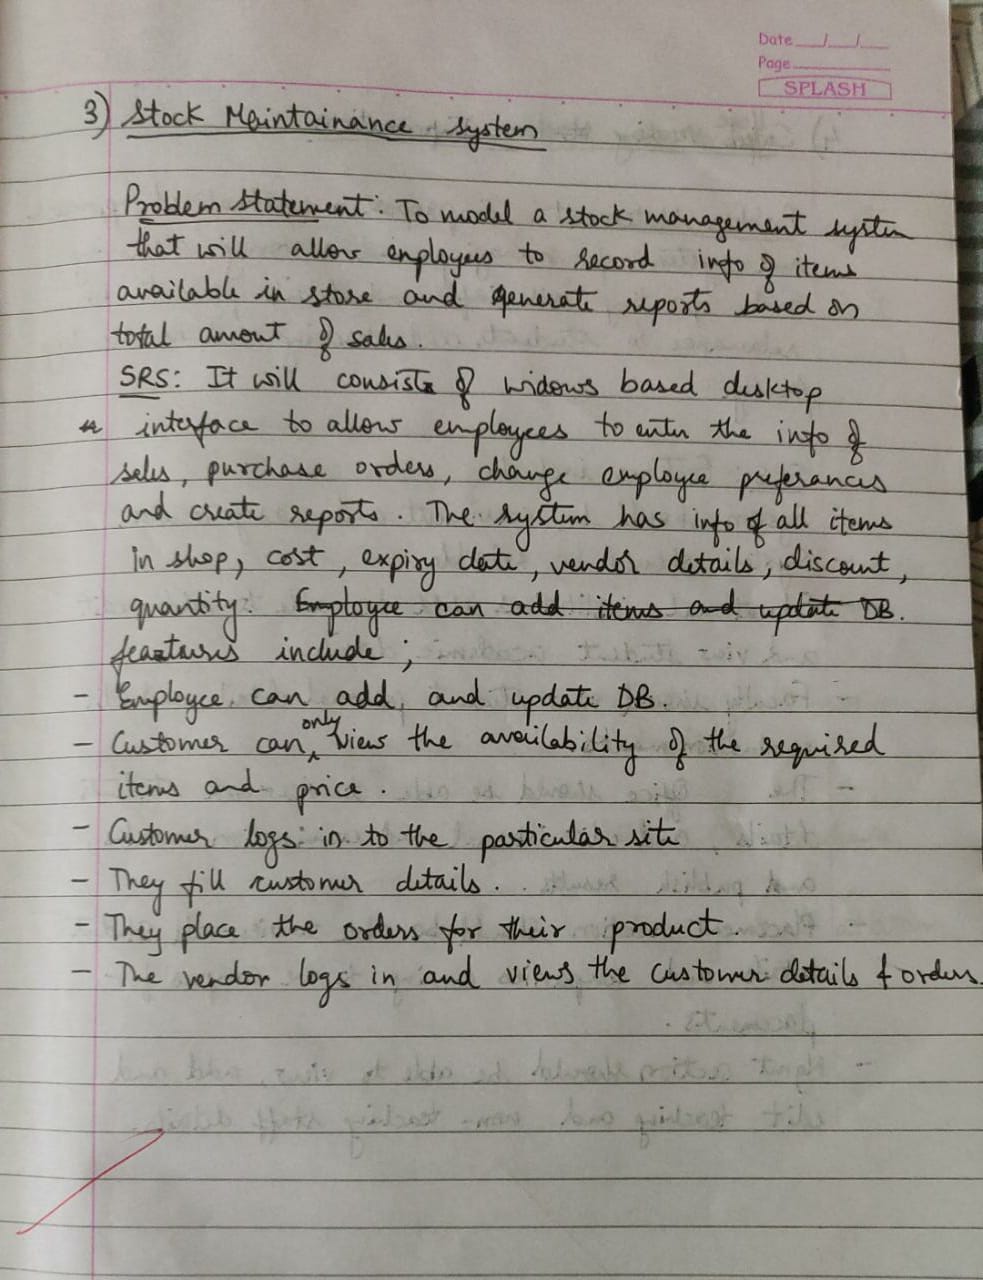 Date / /
Page
SPLASH
3) Stock Maintainance system
Problem Statement: To model a stock management system
that will allow employees to record info of items
available in store and generate reports based on
total amount of sales.
SRS: It will consists of widows based desktop
interface to allow employees to enter the info of
sales, purchase orders, change employee preferances
and create reports. The system has info of all items
in shop, cost, expiry date, vendor details, discount,
quantity. Employee can add items and update DB.
features include;
- Employee can add and update DB.
- Customer can only view the availability of the required
items and price.
- Customer logs in to the particular site
- They fill customer details.
- They place the orders for their product.
- The vendor logs in and views the customer details & orders.